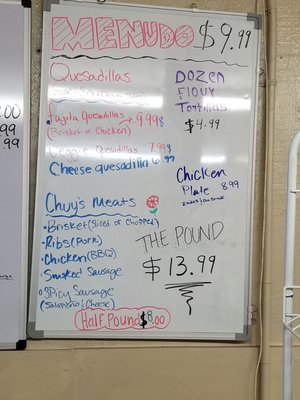 MENUDO $9.99
Quesadillas
Fajita Quesadillas 9.99
(Brisket or Chicken)
Veggie Quesadillas 7.99
Cheese quesadilla 6.99
DOZEN
FLOUR
TORTILLAS
$4.99
Chicken
Plate 8.99
Chuy's Meats
Brisket (Sliced or Chopped)
Ribs (Pork)
Chicken (BBQ)
Smoked Sausage
Spicy Sausage
(Jalapeño/Cheese)
THE POUND
$13.99
Half Pound $8.00
.00
.99
.99